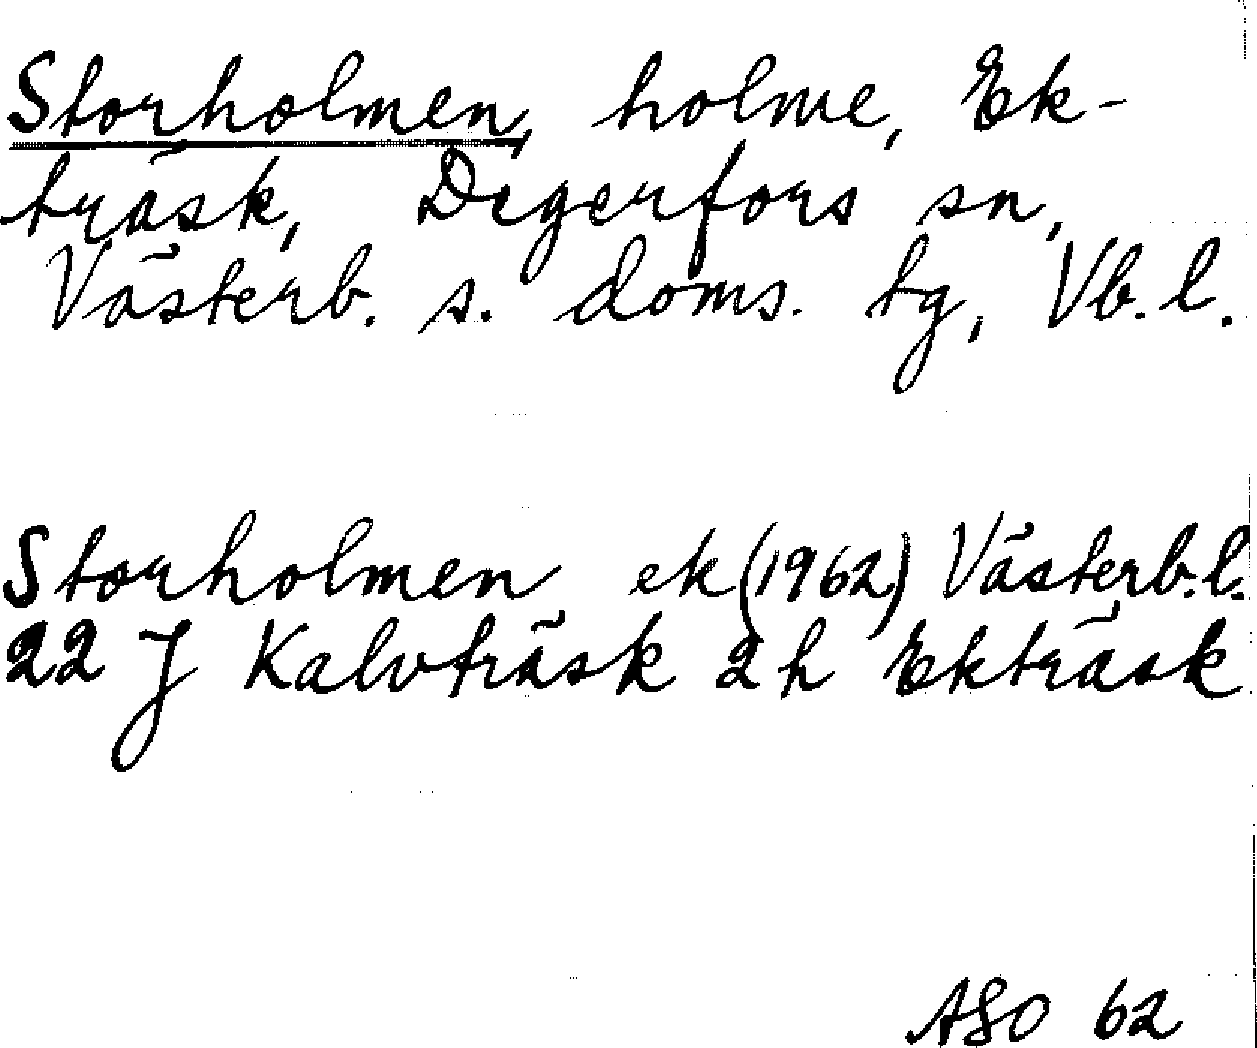 Storholmen, holme, Ek-
träsk, Degerfors sn,
Västerb. s. doms. tg, Vb. l.
Storholmen ek (1962) Västerb. l.
22 J Kalvträsk 2 h Ekträsk
ASO 62